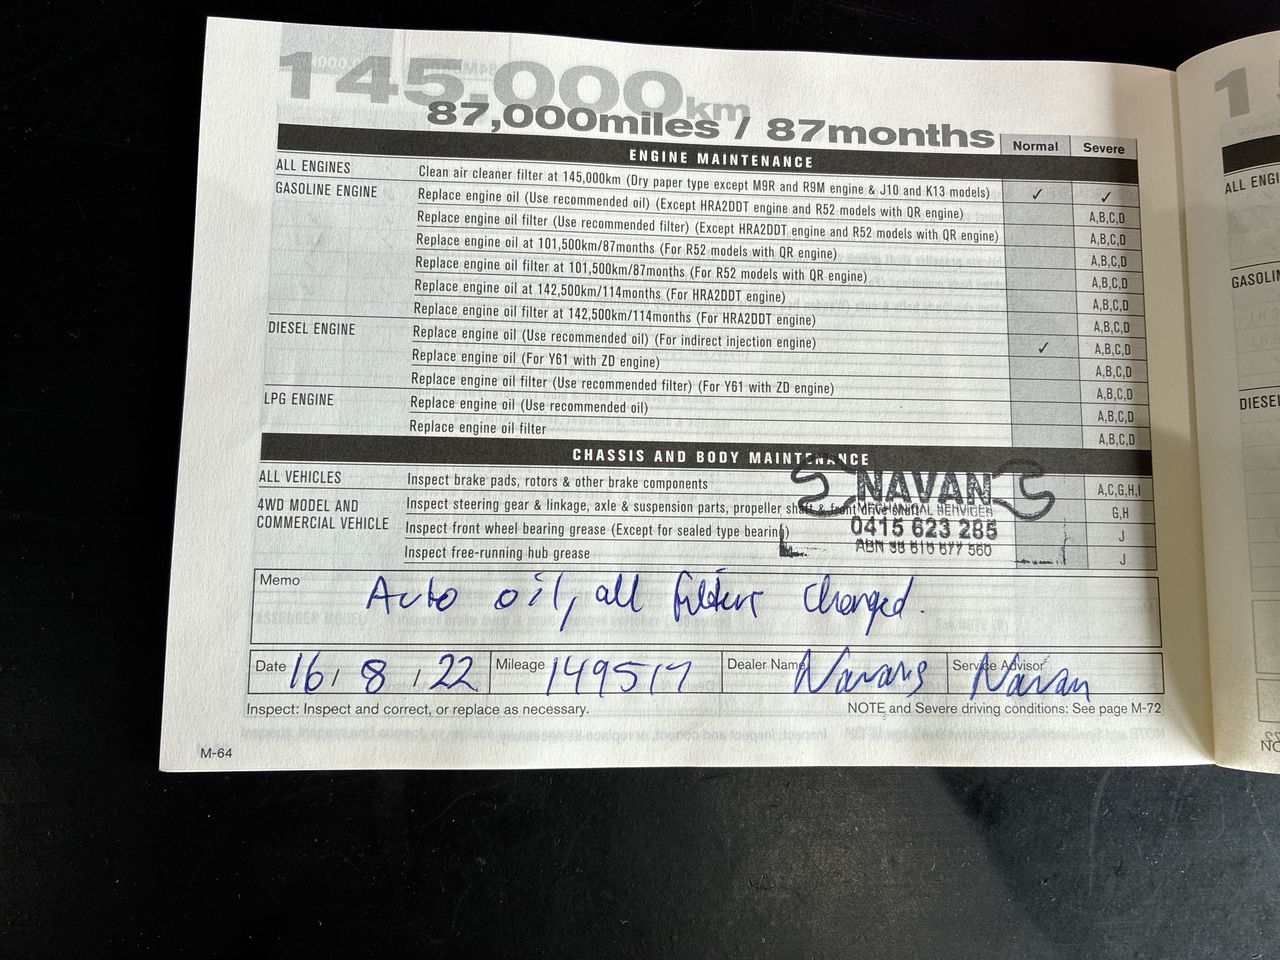 145,000km
87,000miles / 87months
Normal Severe
ENGINE MAINTENANCE
ALL ENGINES Clean air cleaner filter at 145,000km (Dry paper type except M9R and R9M engine & J10 and K13 models) ✓ ✓
GASOLINE ENGINE Replace engine oil (Use recommended oil) (Except HRA2DDT engine and R52 models with QR engine) A,B,C,D
Replace engine oil filter (Use recommended filter) (Except HRA2DDT engine and R52 models with QR engine) A,B,C,D
Replace engine oil at 101,500km/87months (For R52 models with QR engine) A,B,C,D
Replace engine oil filter at 101,500km/87months (For R52 models with QR engine) A,B,C,D
Replace engine oil at 142,500km/114months (For HRA2DDT engine) A,B,C,D
Replace engine oil filter at 142,500km/114months (For HRA2DDT engine) A,B,C,D
DIESEL ENGINE Replace engine oil (Use recommended oil) (For indirect injection engine) ✓ A,B,C,D
Replace engine oil (For Y61 with ZD engine) A,B,C,D
Replace engine oil filter (Use recommended filter) (For Y61 with ZD engine) A,B,C,D
LPG ENGINE Replace engine oil (Use recommended oil) A,B,C,D
Replace engine oil filter A,B,C,D
CHASSIS AND BODY MAINTENANCE
ALL VEHICLES Inspect brake pads, rotors & other brake components A,C,G,H,I
4WD MODEL AND COMMERCIAL VEHICLE Inspect steering gear & linkage, axle & suspension parts, propeller shaft & front drive shaft G,H
Inspect front wheel bearing grease (Except for sealed type bearing) J
Inspect free-running hub grease J
NAVAN
MECHANICAL SERVICES
0415 623 285
ABN 38 616 677 560
Memo Auto oil, all filters changed.
Date 16 / 8 / 22 Mileage 149517 Dealer Name Navans Service Advisor Navan
Inspect: Inspect and correct, or replace as necessary. NOTE and Severe driving conditions: See page M-72
M-64
ALL ENGI
GASOLIN
DIESEL